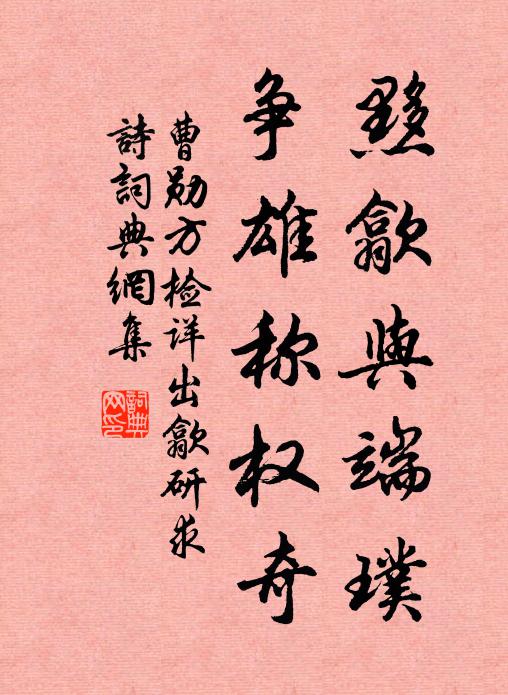 黟歙與端璞
争雄称权奇
曹勋方检详出歙研求
詩詞典網集
詞典網印